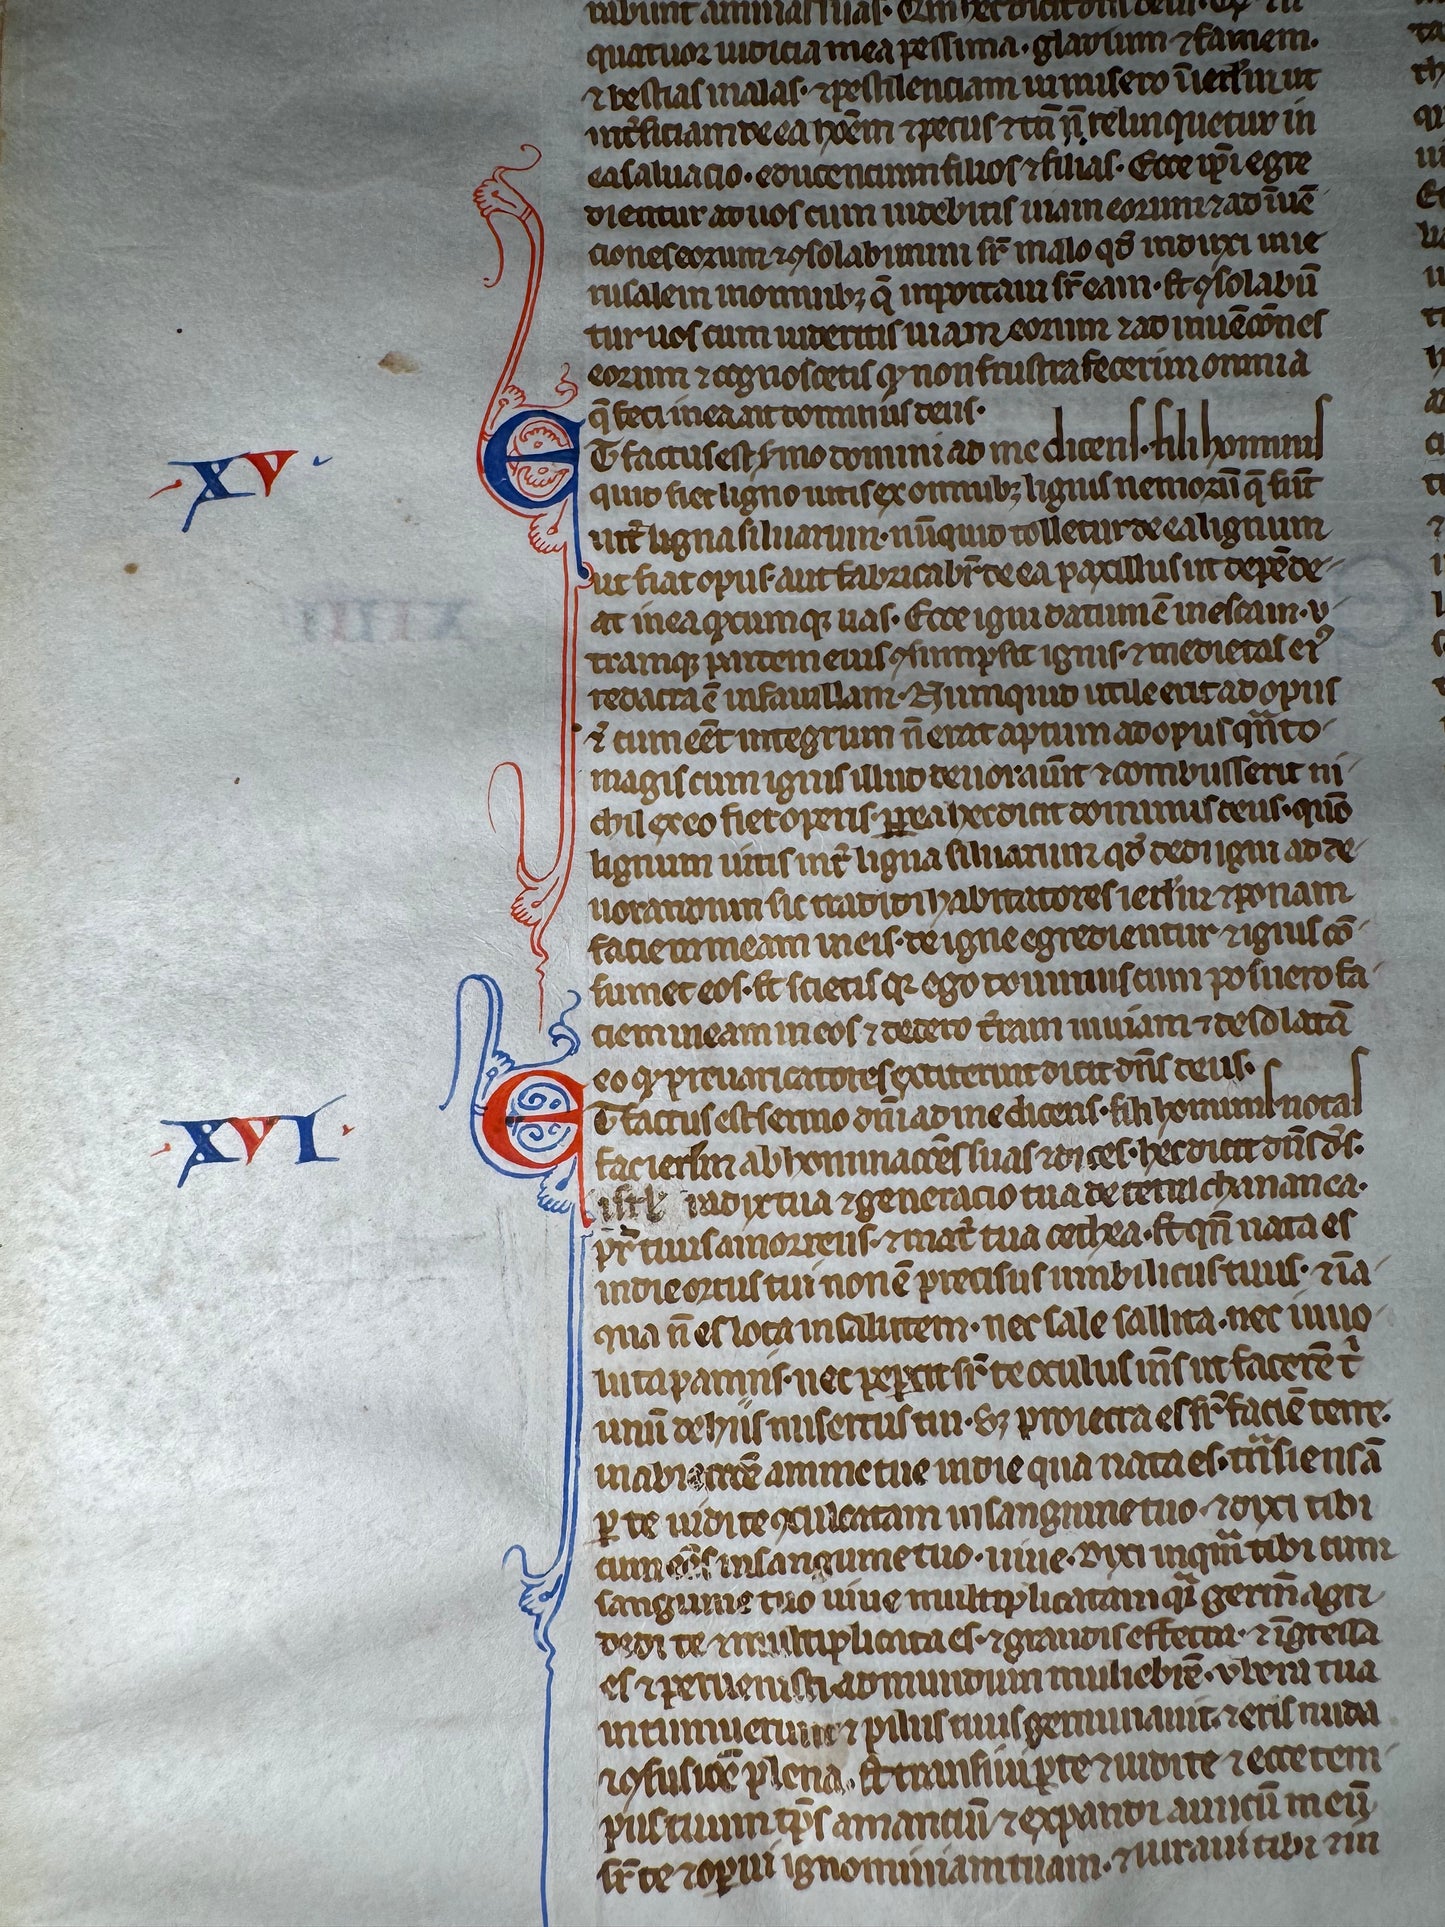 quatuor iudicia mea pessima · gladium ⁊ famem ·
⁊ bestias malas · ⁊ pestilenciam inmisero ī ierl̄m ut
int̄ficiam de ea hoēm ⁊ pecus ⁊ tn̄ ñ relinquetur in
ea saluacio · educencium filios ⁊ filias · Ecce ip̄i egre
dientur ad uos cum uidebitis uiam eorum ⁊ ad īuē
ciones eorum ⁊ ꝯsolabimini sr̄ malo qd̄ induxi in ie
rusalem in omnibꝫ q̄ inportaui sr̄ eam · Et ꝯsolabūn
tur uos cum uideritis uiam eorum ⁊ ad inuēcōnes
eorum ⁊ cognoscetis qͥ non frustra fecerim omnia
q̄ feci in ea ait dominus deus ·
XV
ET factus est s̄mo domini ad me dicens · fili hominis
quid fiet ligno uitis ex omnibꝫ lignis nemorū q̄ sūt
int̄ ligna siluarum · nūquid tolletur de ea lignum
ut fiat opus · aut fabricabr̄ de ea paxillus ut depēde-
at in ea qͦcumqꝫ uas · Ecce igni datum ē in escam · v-
tramqꝫ partem eius ꝯsumpsit ignis · ⁊ medietas eiꝰ
redacta ē in fauillam · Numquid utile erit ad opus
⁊ cum eēt integrum ñ erat aptum ad opus qn̄to-
magis cum ignis illud deuorauīt ⁊ combusserit ni-
chil ex eo fiet operis · ꝓpt̄ea hec dicit dominus deus · quō
lignum uitis int̄ ligna siluarum qd̄ dedi igni ad de-
uorandum sic tradidi habitatores ierl̄m ⁊ ponam
faciem meam in eis · de igne egredientur ⁊ ignis cō-
sumet eos · Et scietis qͥ ego dominus cum posuero fa-
ciem meam in eos ⁊ dedero t̄ram inuiam ⁊ desolatā
eo qͥ p̄uaricatores extiterint dicit dn̄s deus ·
XVI
ET factus est sermo dn̄i ad me dicens · fili hominis notas
fac ierl̄m abhominacōes suas ⁊ dices · hec dicit dn̄s ds̄ ·
radix tua ⁊ generacio tua de terra chananea ·
pr̄ tuus amorreus · ⁊ mat̄ tua cethea · Et qn̄ nata es
in die ortus tui non ē precisus umbilicus tuus · ⁊ ī a-
qua ñ es lota in salutem · nec sale sallita · nec inuo-
luta pannis · nec pepercit sr̄ te oculus m̄s ut facerē tͥ
unū de hiis misertus tui · sꝫ proiecta es sr̄ faciē terre ·
in abiectōe anime tue in die qua nata es · trāsiens ā
ꝑ te uidi te ꝯculcatam in sanguine tuo · ⁊ dixi tibi
cum eēs in sanguine tuo · uiue · Dixi inquā tibi cum
sanguine tuo uiue multiplicatam qͣ germē agri
dedi te ⁊ multiplicata es · ⁊ grandis effecta · ⁊ īg̃ssa
es ⁊ peruenisti ad mundum muliebrē · vbera tua
intumuerunt ⁊ pilus tuus germinauit · ⁊ eris nuda
⁊ ꝯfusiōe plena · Et transiui ꝑ te ⁊ uidi te ⁊ ecce tem-
pus tuum tp̄s amanciū ⁊ expandi amictū meū
sr̄ te ⁊ operui ignominiam tuam · ⁊ iuraui tibi ⁊ in